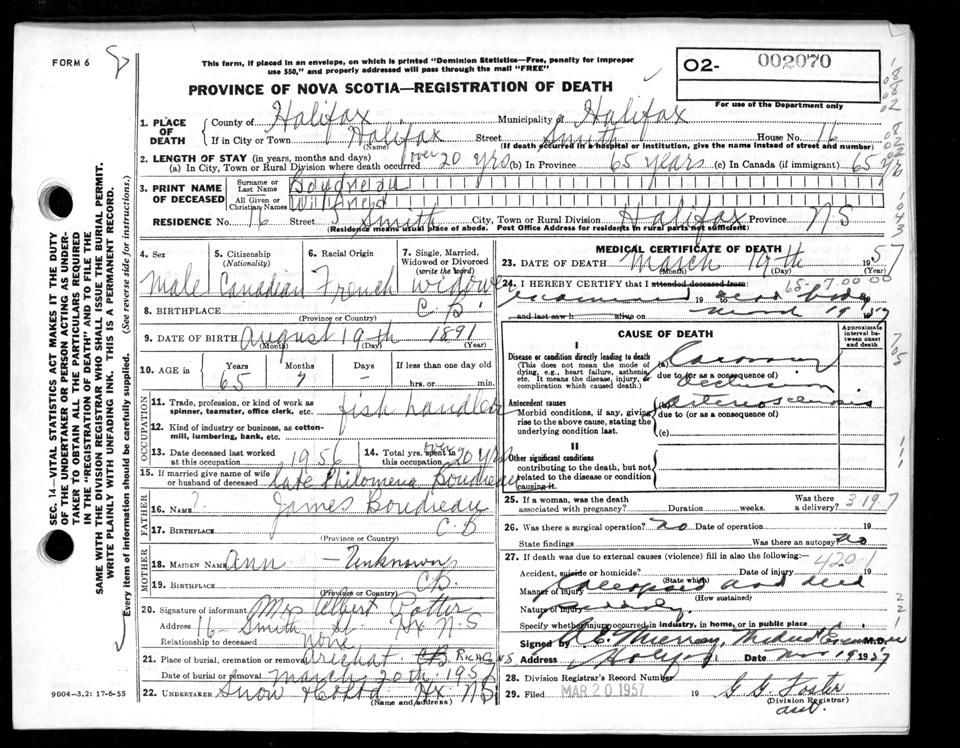 FORM 6
This form, if placed in an envelope, on which is printed "Dominion Statistics—Free, penalty for improper
use $50," and properly addressed will pass through the mail "FREE"
PROVINCE OF NOVA SCOTIA—REGISTRATION OF DEATH
O2- 002070
For use of the Department only
1. PLACE OF DEATH
County of Halifax Municipality of Halifax
If in City or Town Halifax Street Smith House No. 16
(Name) (If death occurred in a hospital or institution, give the name instead of street and number)
2. LENGTH OF STAY (in years, months and days)
(a) In City, Town or Rural Division where death occurred over 20 yrs (b) In Province 65 years (c) In Canada (if immigrant) 65
3. PRINT NAME OF DECEASED
Surname or Last Name Boudreau
All Given or Christian Names Wilfred
RESIDENCE No. 16 Street Smith City, Town or Rural Division Halifax Province NS
(Residence means usual place of abode. Post Office Address for residents in rural parts not sufficient)
4. Sex 5. Citizenship (Nationality) 6. Racial Origin 7. Single, Married, Widowed or Divorced (write the word)
Male Canadian French widower
8. BIRTHPLACE C.B.
(Province or Country)
9. DATE OF BIRTH August 19th 1891
(Month) (Day) (Year)
10. AGE in Years Months Days If less than one day old
65 7 – hrs. or min.
OCCUPATION
11. Trade, profession, or kind of work as spinner, teamster, office clerk, etc. fish handler
12. Kind of industry or business, as cotton-mill, lumbering, bank, etc.
13. Date deceased last worked at this occupation 1956 14. Total yrs. spent in this occupation over 20 yrs
15. If married give name of wife or husband of deceased late Philomena Boudreau
FATHER
16. NAME ? James Boudreau
17. BIRTHPLACE C.B
(Province or Country)
MOTHER
18. MAIDEN NAME Ann – Unknown
19. BIRTHPLACE C.B.
(Province or Country)
20. Signature of informant Mrs Albert Potter
Address 16 Smith St. Hx N.S
Relationship to deceased none
21. Place of burial, cremation or removal Arichat CB
Date of burial or removal March 20th 1957
22. UNDERTAKER Snow & Co Ltd Hx NS
(Name and address)
MEDICAL CERTIFICATE OF DEATH
23. DATE OF DEATH March 19th 1957
(Month) (Day) (Year)
24. I HEREBY CERTIFY that I attended deceased from
examined 19 to dead body
and last saw h alive on March 19 1957
65-7.00.00
CAUSE OF DEATH
Approximate interval between onset and death
I
Disease or condition directly leading to death
(This does not mean the mode of dying, e.g., heart failure, asthenia, etc. It means the disease, injury, or complication which caused death.)
(a) Coronary
due to (or as a consequence of) Occlusion
Antecedent causes
Morbid conditions, if any, giving rise to the above cause, stating the underlying condition last.
(b) Arteriosclerosis
due to (or as a consequence of)
(c)
II
Other significant conditions
contributing to the death, but not related to the disease or condition causing it.
25. If a woman, was the death associated with pregnancy? Duration weeks. Was there a delivery?
3-19.7
26. Was there a surgical operation? no Date of operation 19
State findings Was there an autopsy? no
27. If death was due to external causes (violence) fill in also the following:—
420-1
Accident, suicide or homicide? Date of injury 19
(State which)
Manner of injury Collapsed and died
(How sustained)
Nature of injury suddenly.
Specify whether injury occurred in industry, in home, or in public place
Signed by Murray, Medical Examiner M.D.
Address Halifax Date Mar 19 1957
28. Division Registrar's Record Number
29. Filed MAR 20 1957 19 G G Foster
(Division Registrar)
SEC. 14—VITAL STATISTICS ACT MAKES IT THE DUTY
OF THE UNDERTAKER OR PERSON ACTING AS UNDER-
TAKER TO OBTAIN ALL THE PARTICULARS REQUIRED
IN THE "REGISTRATION OF DEATH" AND TO FILE THE
SAME WITH THE DIVISION REGISTRAR WHO SHALL ISSUE THE BURIAL PERMIT.
WRITE PLAINLY WITH UNFADING INK. THIS IS A PERMANENT RECORD.
Every item of information should be carefully supplied. (See reverse side for instructions.)
9004-3.2: 17-6-55